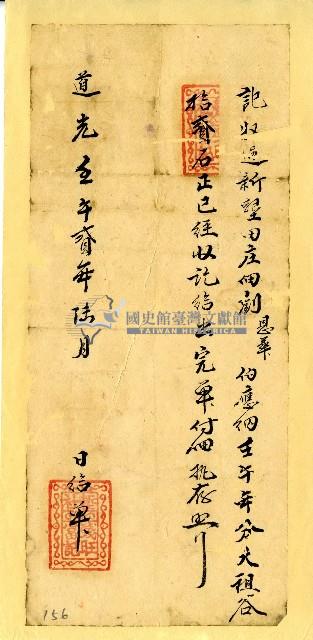 記收過新墾田庄佃劉恩華伯應納壬午年分大租谷
拾貳石正已經收訖給出完單付佃执存照
道光壬午貳年陸月 日給單
國史館臺灣文獻館
TAIWAN HISTORICA
156